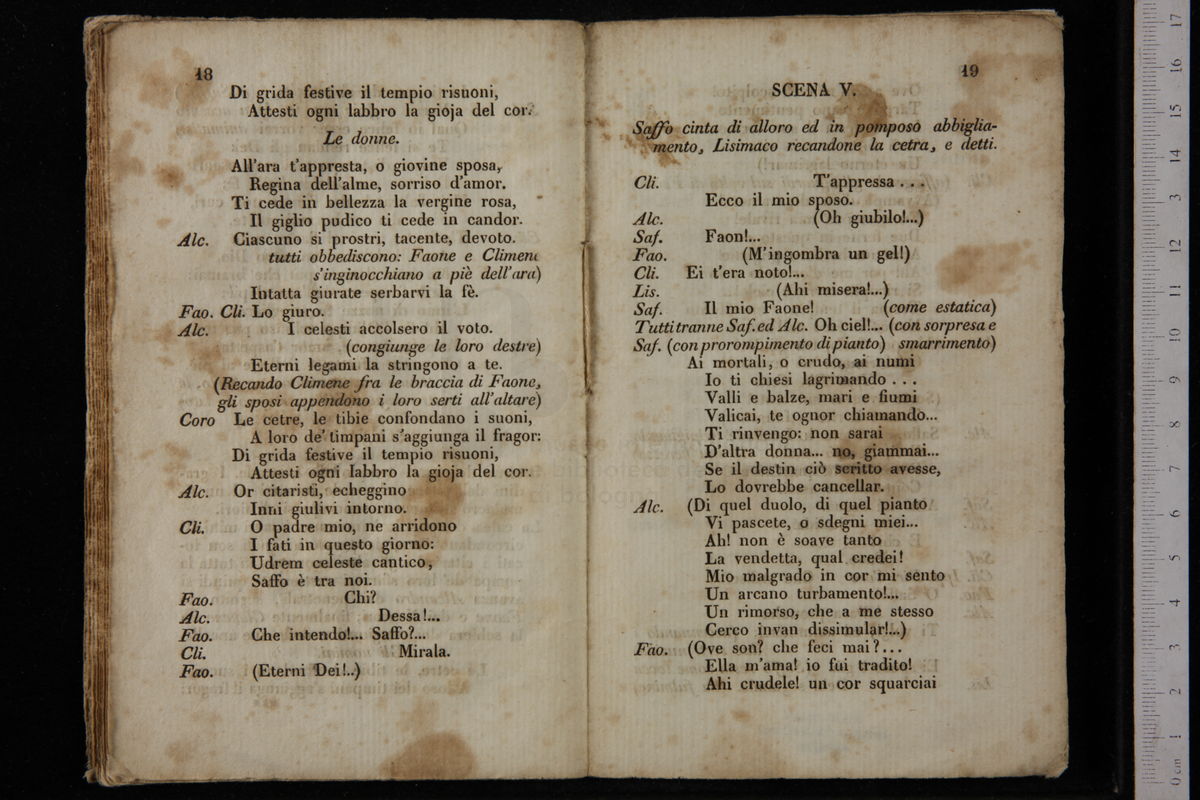 18
Di grida festive il tempio risuoni,
Attesti ogni labbro la gioja del cor.
Le donne.
All'ara t'appresta, o giovine sposa,
Regina dell'alme, sorriso d'amor.
Ti cede in bellezza la vergine rosa,
Il giglio pudico ti cede in candor.
Alc. Ciascuno si prostri, tacente, devoto.
tutti obbediscono: Faone e Climene
s'inginocchiano a piè dell'ara)
Intatta giurate serbarvi la fè.
Fao. Cli. Lo giuro.
Alc. I celesti accolsero il voto.
(congiunge le loro destre)
Eterni legami la stringono a te.
(Recando Climene fra le braccia di Faone,
gli sposi appendono i loro serti all'altare)
Coro Le cetre, le tibie confondano i suoni,
A loro de' timpani s'aggiunga il fragor:
Di grida festive il tempio risuoni,
Attesti ogni labbro la gioja del cor.
Alc. Or citaristi, echeggino
Inni giulivi intorno.
Cli. O padre mio, ne arridono
I fati in questo giorno:
Udrem celeste cantico,
Saffo è tra noi.
Fao. Chi?
Alc. Dessa!...
Fao. Che intendo!... Saffo?...
Cli. Mirala.
Fao. (Eterni Dei!..)
19
SCENA V.
Saffo cinta di alloro ed in pomposo abbiglia-
mento, Lisimaco recandone la cetra, e detti.
Cli. T'appressa . . .
Ecco il mio sposo.
Alc. (Oh giubilo!...)
Saf. Faon!...
Fao. (M'ingombra un gel!)
Cli. Ei t'era noto!...
Lis. (Ahi misera!...)
Saf. Il mio Faone! (come estatica)
Tutti tranne Saf. ed Alc. Oh ciel!... (con sorpresa e
Saf. (con prorompimento di pianto) smarrimento)
Ai mortali, o crudo, ai numi
Io ti chiesi lagrimando . . .
Valli e balze, mari e fiumi
Valicai, te ognor chiamando...
Ti rinvengo: non sarai
D'altra donna... no, giammai...
Se il destin ciò scritto avesse,
Lo dovrebbe cancellar.
Alc. (Di quel duolo, di quel pianto
Vi pascete, o sdegni miei...
Ah! non è soave tanto
La vendetta, qual credei!
Mio malgrado in cor mi sento
Un arcano turbamento!...
Un rimorso, che a me stesso
Cerco invan dissimular!...)
Fao. (Ove son? che feci mai?...
Ella m'ama! io fui tradito!
Ahi crudele! un cor squarciai
0 cm 1 2 3 4 5 6 7 8 9 10 11 12 13 14 15 16 17